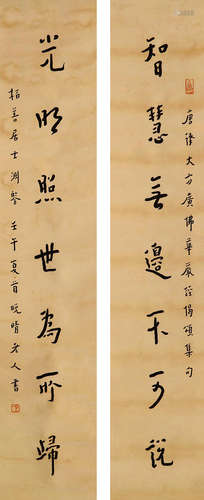 智慧無邊不可說
唐譯大方廣佛華嚴經偈頌集句
光明照世為所歸
柏善居士淵詧 壬午夏首晚晴老人書